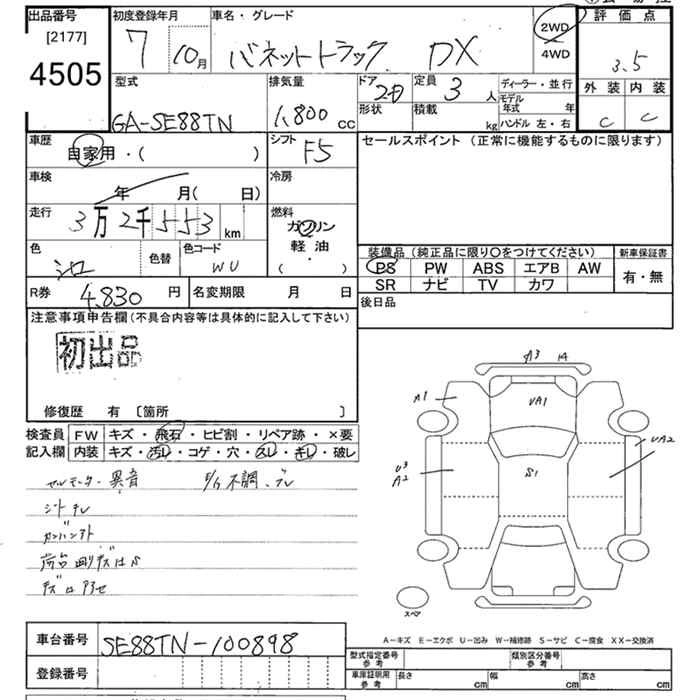 出品番号
[2177]
4505
初度登録年月
7 10月
車名・グレード
バネットトラック DX
2WD
4WD
評価点
3.5
外装 内装
C C
型式
GA-SE88TN
排気量
1,800 cc
ドア
2D
定員
3 人
形状
積載
kg
ディーラー・並行
モデル年式 年
ハンドル 左・右
車歴
自家用・( )
シフト
F5
セールスポイント (正常に機能するものに限ります)
車検
年 月(日)
冷房
走行
3万2千553 km
燃料
ガソリン
軽油
・
( )
色
シロ
色替
色コード
WU
装備品 (純正品に限り○をつけてください)
PS PW ABS エアB AW
SR ナビ TV カワ
新車保証書
有・無
R券 4,830 円
名変期限 月 日
後日品
注意事項申告欄 (不具合内容等は具体的に記入して下さい)
初出品
修復歴 有 〔箇所 〕
検査員記入欄
FW キズ・飛石・ヒビ割・リペア跡・×要
内装 キズ・汚レ・コゲ・穴・スレ・キレ・破レ
セルモーター異音 E/G不調、ブレ
シートキレ
荷台
A3
A1
UA1
UA2
U3
A2
S1
スペア
A-キズ E-エクボ U-凹み W-補修跡 S-サビ C-腐食 XX-交換済
車台番号
SE88TN-100898
登録番号
型式指定番号
参考
類別区分番号
参考
車庫証明用
参考
長さ cm
幅 cm
高さ cm